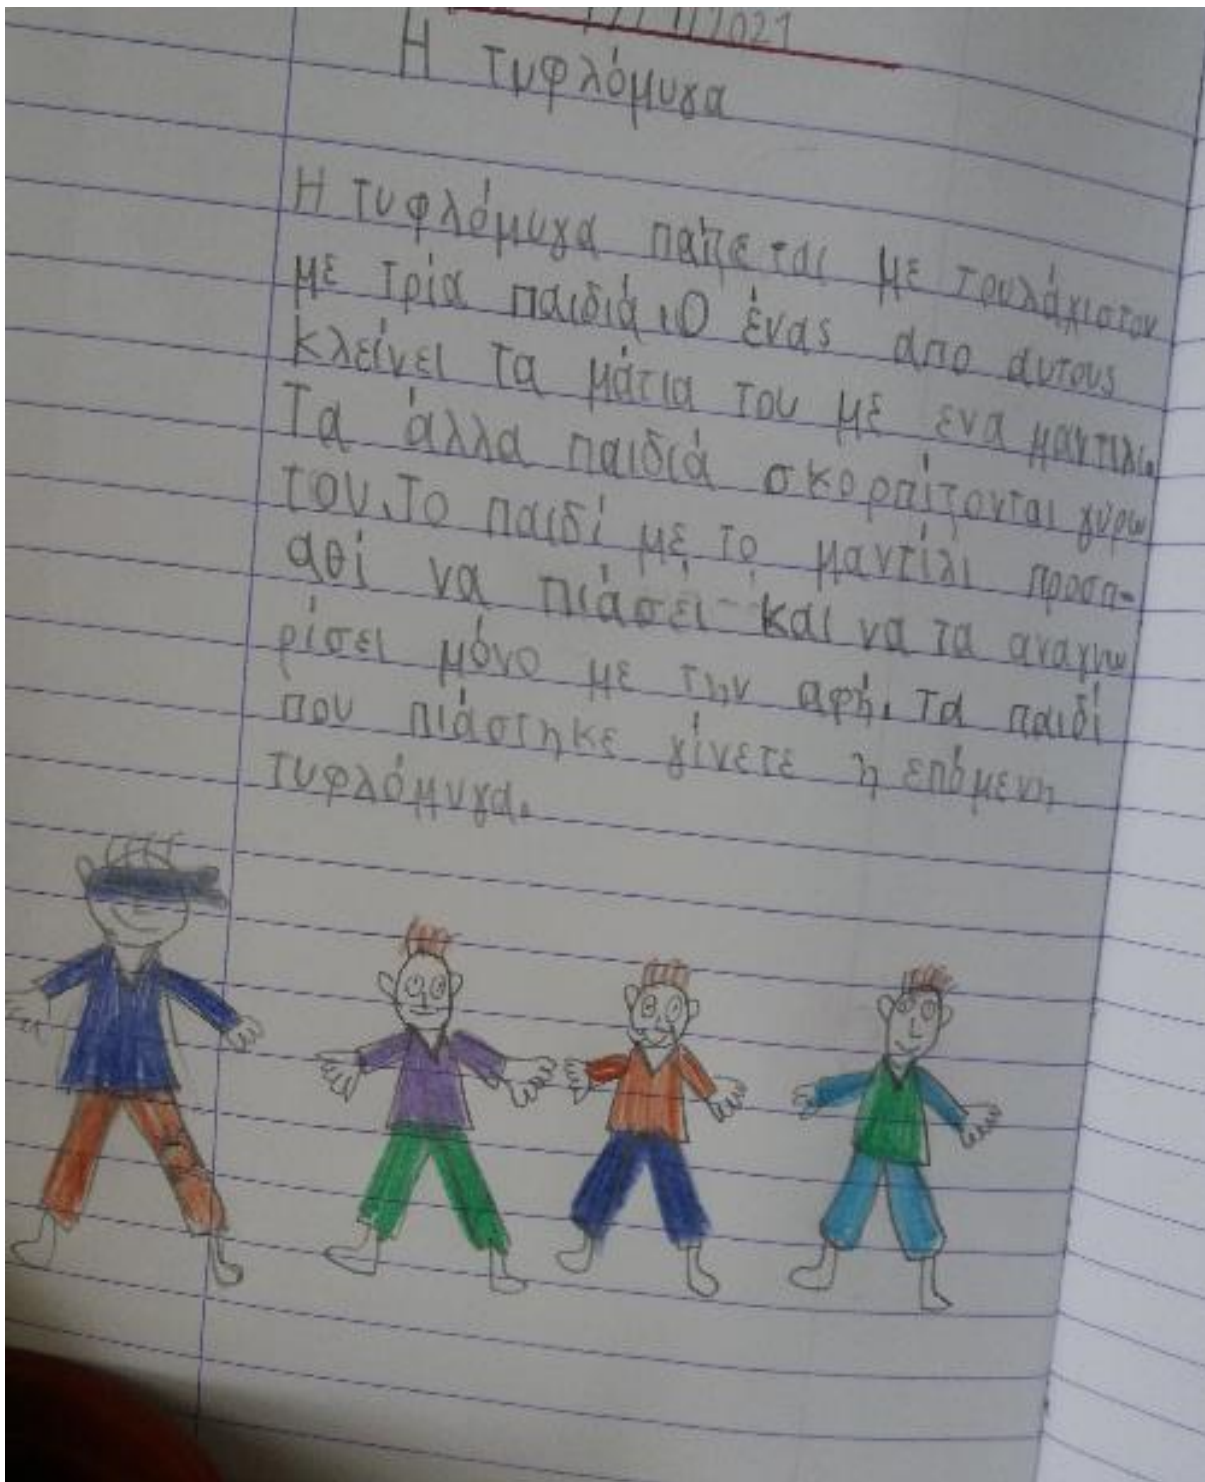 2021
Η τυφλόμυγα
Η τυφλόμυγα παίζεται με τουλάχιστον
με τρία παιδιά. Ο ένας απο αυτους
κλείνει τα μάτια του με ενα μαντιλι.
Τα άλλα παιδιά σκορπίζονται γύρω
του. Το παιδί με το μαντίλι προσπ-
αθί να πιάσει και να τα αναγνω
ρίσει μόνο με την αφή. Τα παιδί
που πιάστηκε γίνετε η επόμενη
τυφλόμυγα.